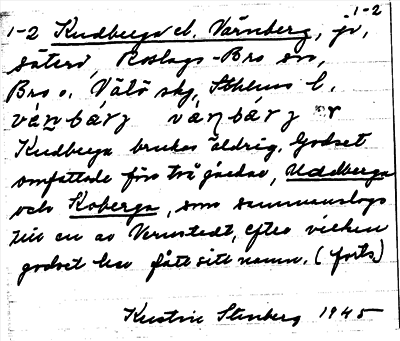 1-2
1-2 Kudberga el. Värnberg, jr,
säteri, Roslags-Bro sn,
Bro o. Vätö skg, Sthlms l.
Kudberga brukas aldrig. Godset
omfattade förr två gårdar, Uddberga
och Koberga, som sammanslogs
till en av Vernstedt, efter vilken
godset lär fått sitt namn. (forts)
Kerstin Stenberg 1945